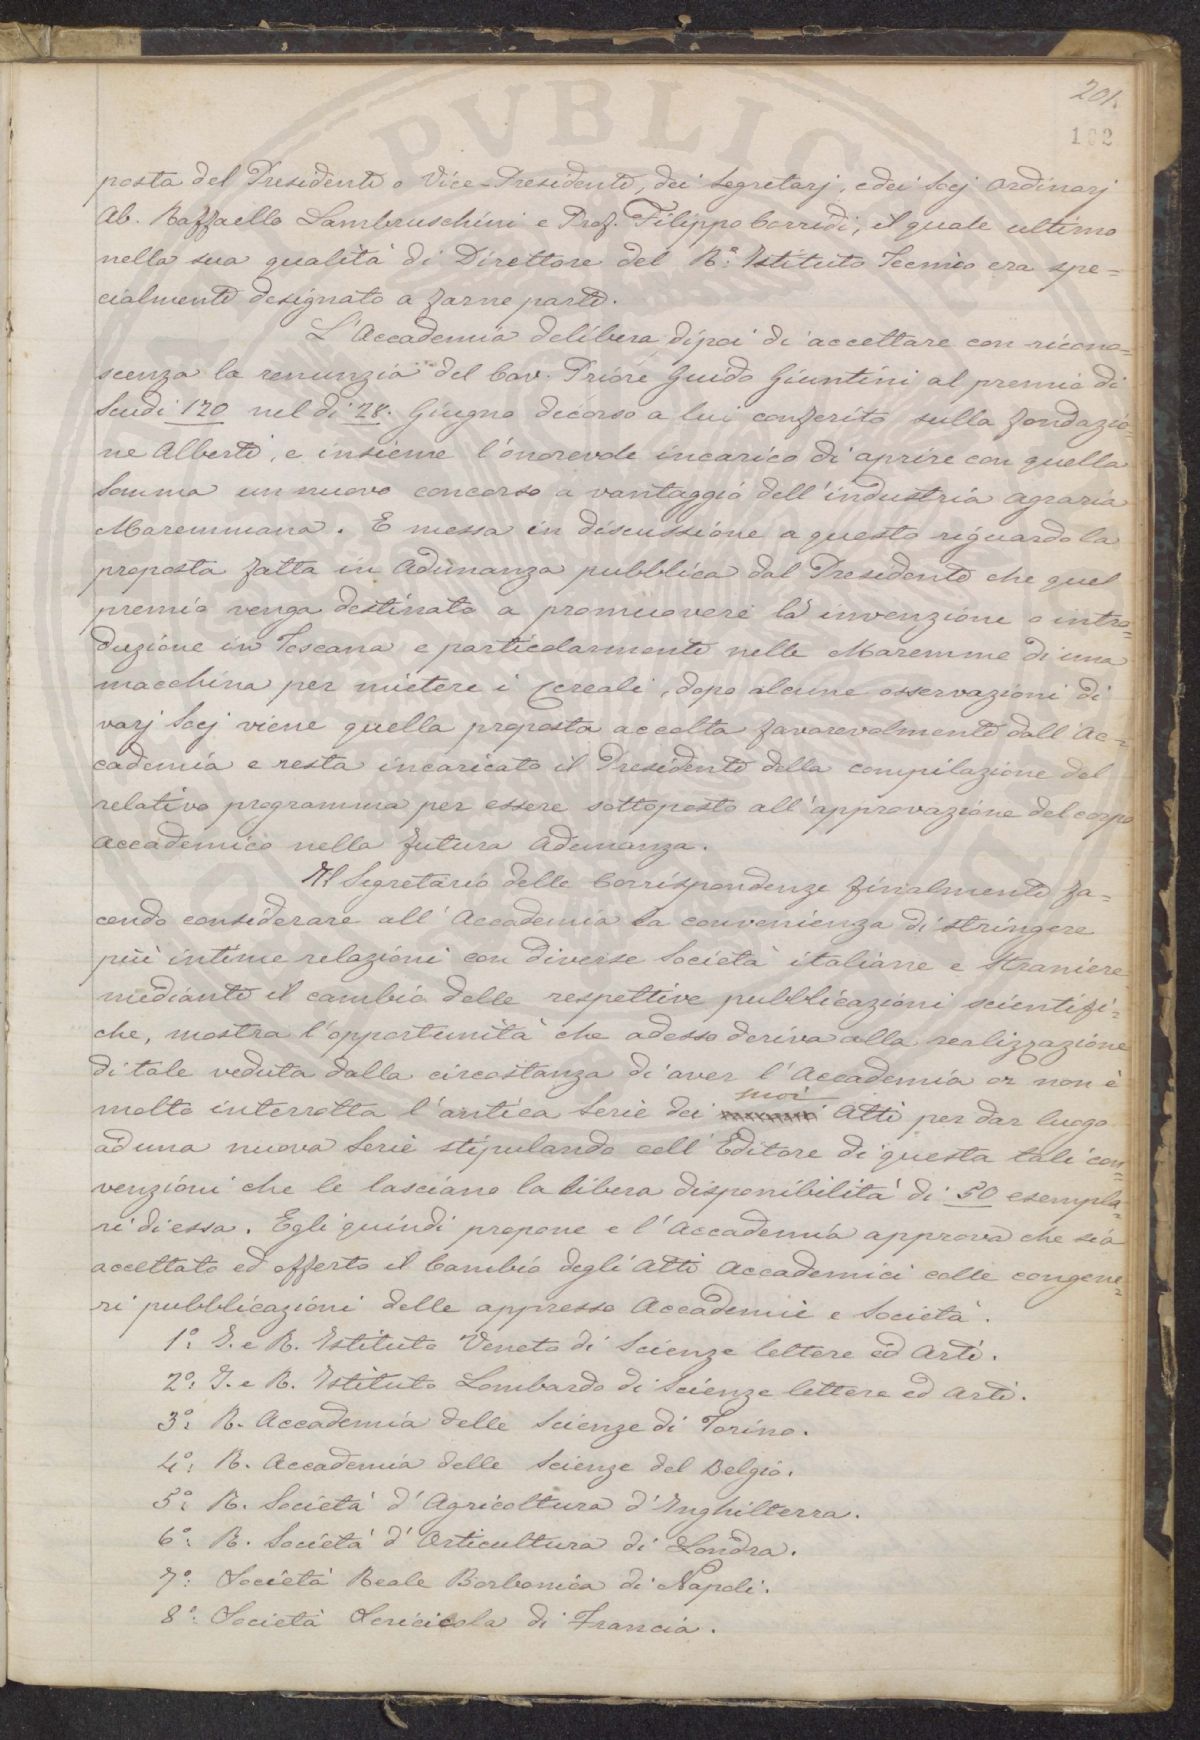 201.
102
posta del Presidente o Vice-Presidente, dei Segretarj, e dei Socj Ordinarj
Ab. Raffaello Lambruschini e Prof. Filippo Corridi, il quale ultimo
nella sua qualità di Direttore del R.° Istituto Tecnico era spe=
cialmente designato a farne parte.
L'Accademia delibera dipoi di accettare con ricono=
scenza la renunzia del Cav. Priore Guido Giuntini al premio di
Scudi 120 nel dì 28. Giugno decorso a lui conferito sulla fondazio=
ne Alberti, e insieme l'onorevole incarico di aprire con quella
Somma un nuovo concorso a vantaggio dell'industria agraria
Maremmana. E messa in discussione a questo riguardo la
proposta fatta in Adunanza pubblica dal Presidente che quel
premio venga destinato a promuovere la invenzione o intro=
duzione in Toscana e particolarmente nelle Maremme di una
macchina per mietere i Cereali, dopo alcune osservazioni di
varj Socj viene quella proposta accolta favorevolmente dall'Ac=
cademia e resta incaricato il Presidente della compilazione del
relativo programma per essere sottoposto all'approvazione del corpo
Accademico nella futura Adunanza.
Il Segretario delle Corrispondenze finalmente fa=
cendo considerare all'Accademia la convenienza di stringere
più intime relazioni con diverse Società italiane e Straniere
mediante il cambio delle respettive pubblicazioni scientifi=
che, mostra l'opportunità che adesso deriva alla realizzazione
di tale veduta dalla circostanza di aver l'Accademia or non è
suoi
molto interrotta l'antica Serie dei Atti per dar luogo
ad una nuova Serie stipulando coll'Editore di questa tali con=
venzioni che le lasciano la libera disponibilità di 50 esempla=
ri di essa. Egli quindi propone e l'Accademia approva che sia
accettato ed offerto il Cambio degli Atti Accademici colle congene=
ri pubblicazioni delle appresso Accademie e Società.
1° I. e R. Istituto Veneto di Scienze lettere ed Arti.
2° I. e R. Istituto Lombardo di Scienze lettere ed Arti.
3° R. Accademia delle Scienze di Torino.
4° R. Accademia delle Scienze del Belgio.
5° R. Società d'Agricoltura d'Inghilterra.
6° R. Società d'Orticultura di Londra.
7° Società Reale Borbonica di Napoli.
8° Società Sericicola di Francia.